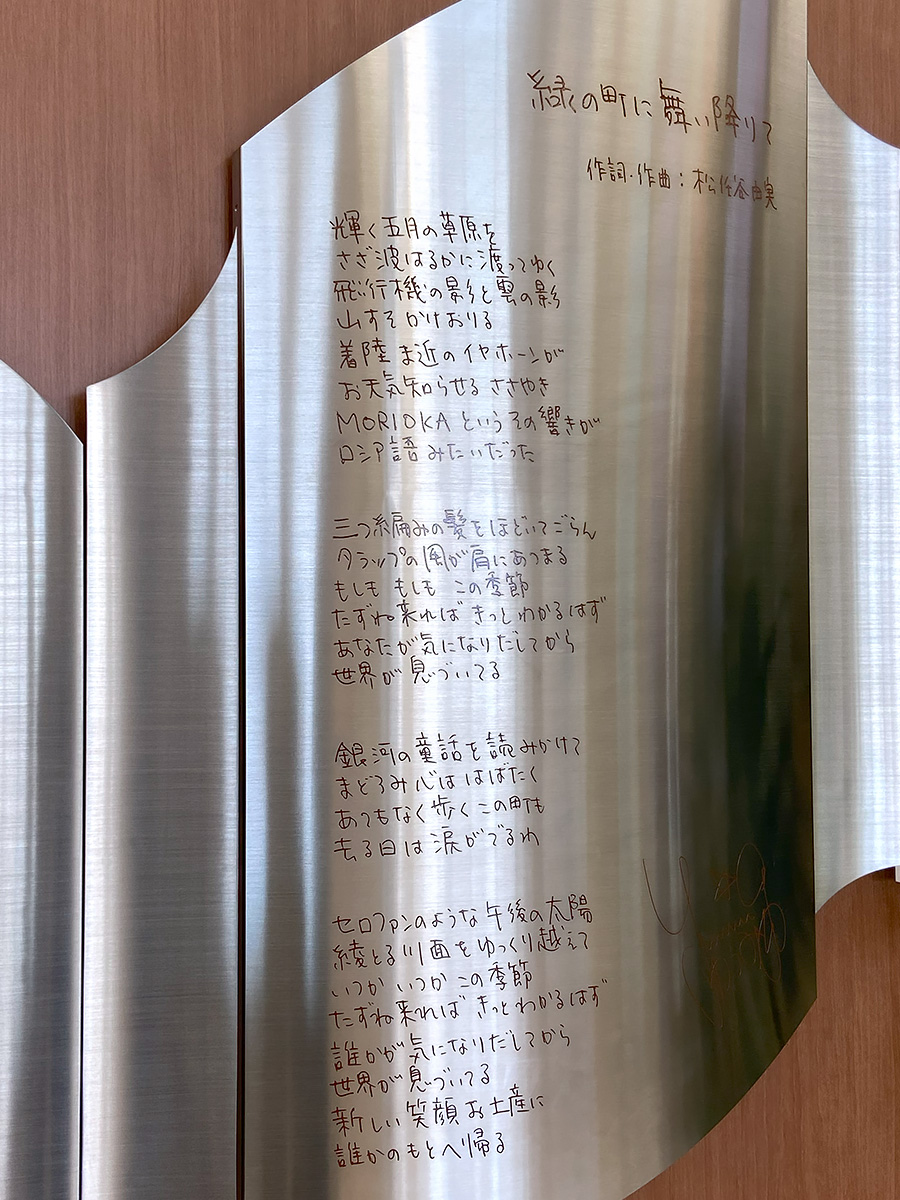 緑の町に舞い降りて
作詞・作曲：松任谷由実
輝く五月の草原を
さざ波はるかに渡ってゆく
飛行機の影と雲の影
山すそかけおりる
着陸ま近のイヤホーンが
お天気知らせるささやき
MORIOKAというその響きが
ロシア語みたいだった
三つ編みの髪をほどいてごらん
タラップの風が肩にあつまる
もしも もしも この季節
たずね来れば きっとわかるはず
あなたが気になりだしてから
世界が息づいてる
銀河の童話を読みかけて
まどろみ心は はばたく
あてもなく歩くこの町も
去る日は涙がでるわ
セロファンのような午後の太陽
綾とる川面をゆっくり越えて
いつか いつか この季節
たずね来れば きっとわかるはず
誰かが気になりだしてから
世界が息づいてる
新しい笑顔お土産に
誰かのもとへ帰る